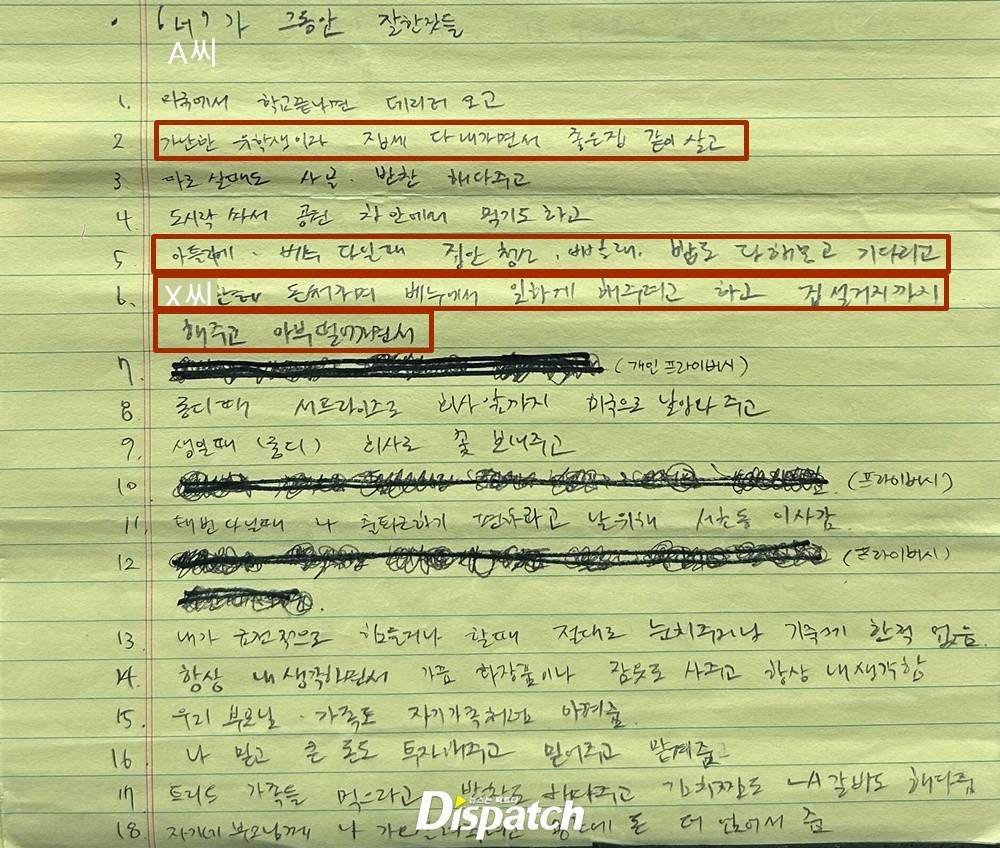 • '너'가 그동안 잘한짓들
A씨
1. 미국에서 학교끝나면 데리러 오고
2 가난한 유학생이라 집세 다 내가면서 좋은집 같이 살고
3 따로 살때도 사골. 반찬 해다주고
4 도시락 싸서 공원 차 안에서 먹기도 하고
5 베누 다닐때 집안 청소, 빨래, 밥도 다해놓고 기다리고
6. X씨한테 돈써가며 베누에서 일하게 해주려고 하고 집 설거지까지
해주고 아부떨어가면서
7. (개인 프라이버시)
8 롱디때 서프라이즈로 회사 앞까지 미국으로 날아와 주고
9. 생일때 (롱디) 회사로 꽃 보내주고
10 (프라이버시)
11, 다닐때 나 출퇴근하기 편하라고 날위해 서초동 이사감
12 (프라이버시)
13 내가 금전적으로 힘들거나 할때 절대로 눈치주거나 기죽게 한적 없음.
14. 항상 내 생각하면서 가끔 화장품이나 잠옷도 사주고 항상 내생각함
15. 우리 부모님. 가족도 자기가족처럼 아껴줌.
16 나 믿고 큰 돈도 투자해주고 믿어주고 맡겨줌
17 가족들 먹으라고 반찬도 해다주고 김치찜도 LA갈비도 해다줌
18. 자기네 부모님께 나 돈 더 얹어서 줌
뉴스는 팩트다
Dispatch